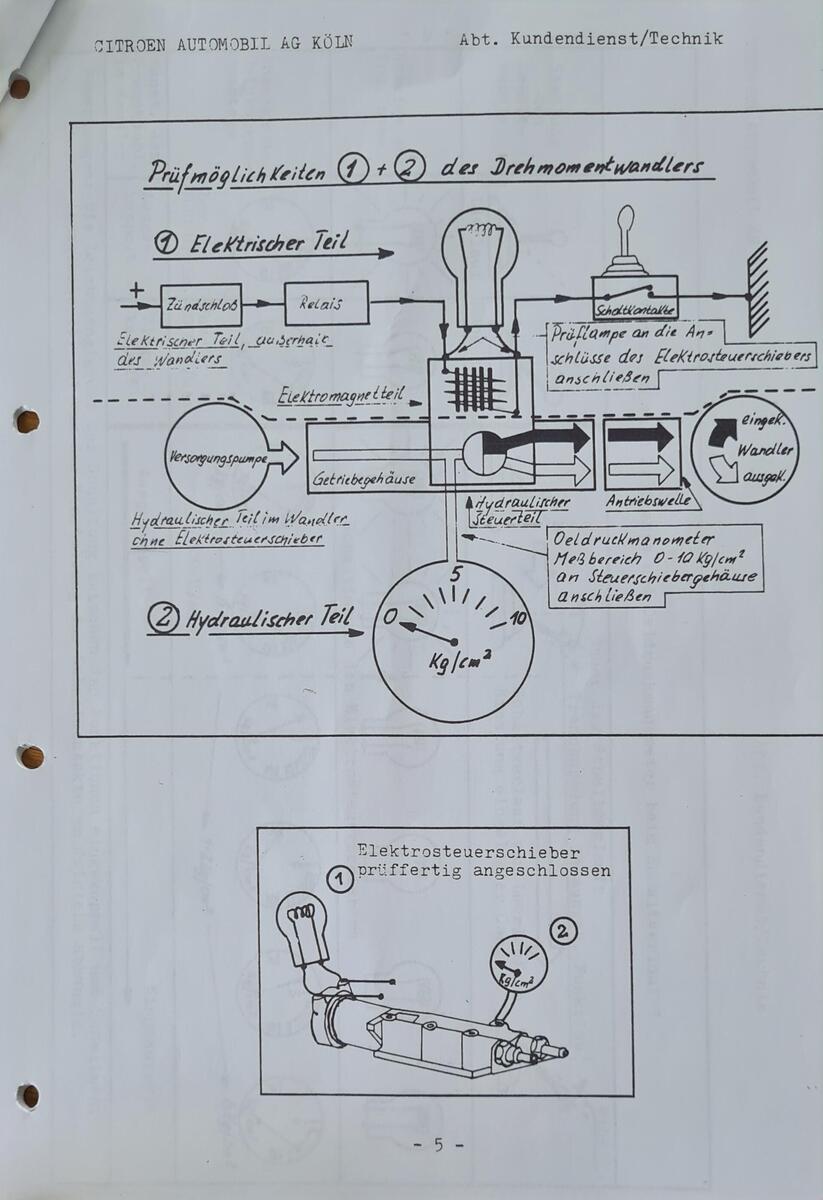 CITROEN AUTOMOBIL AG KÖLN
Abt. Kundendienst/Technik
Prüfmöglichkeiten 1 + 2 des Drehmomentwandlers
1 Elektrischer Teil
+
Zündschloß
Relais
Schaltkontakte
Elektrischer Teil, außerhalb
des Wandlers
Prüflampe an die An=
schlüsse des Elektrosteuerschiebers
anschließen
Elektromagnetteil
Versorgungspumpe
Getriebegehäuse
Hydraulischer
Steuerteil
Antriebswelle
eingek.
Wandler
ausgek.
Hydraulischer Teil im Wandler
ohne Elektrosteuerschieber
Oeldruckmanometer
Meßbereich 0-10 Kg/cm²
an Steuerschiebergehäuse
anschließen
2 Hydraulischer Teil
0
5
10
Kg/cm²
Elektrosteuerschieber
prüffertig angeschlossen
1
2
Kg/cm²
- 5 -